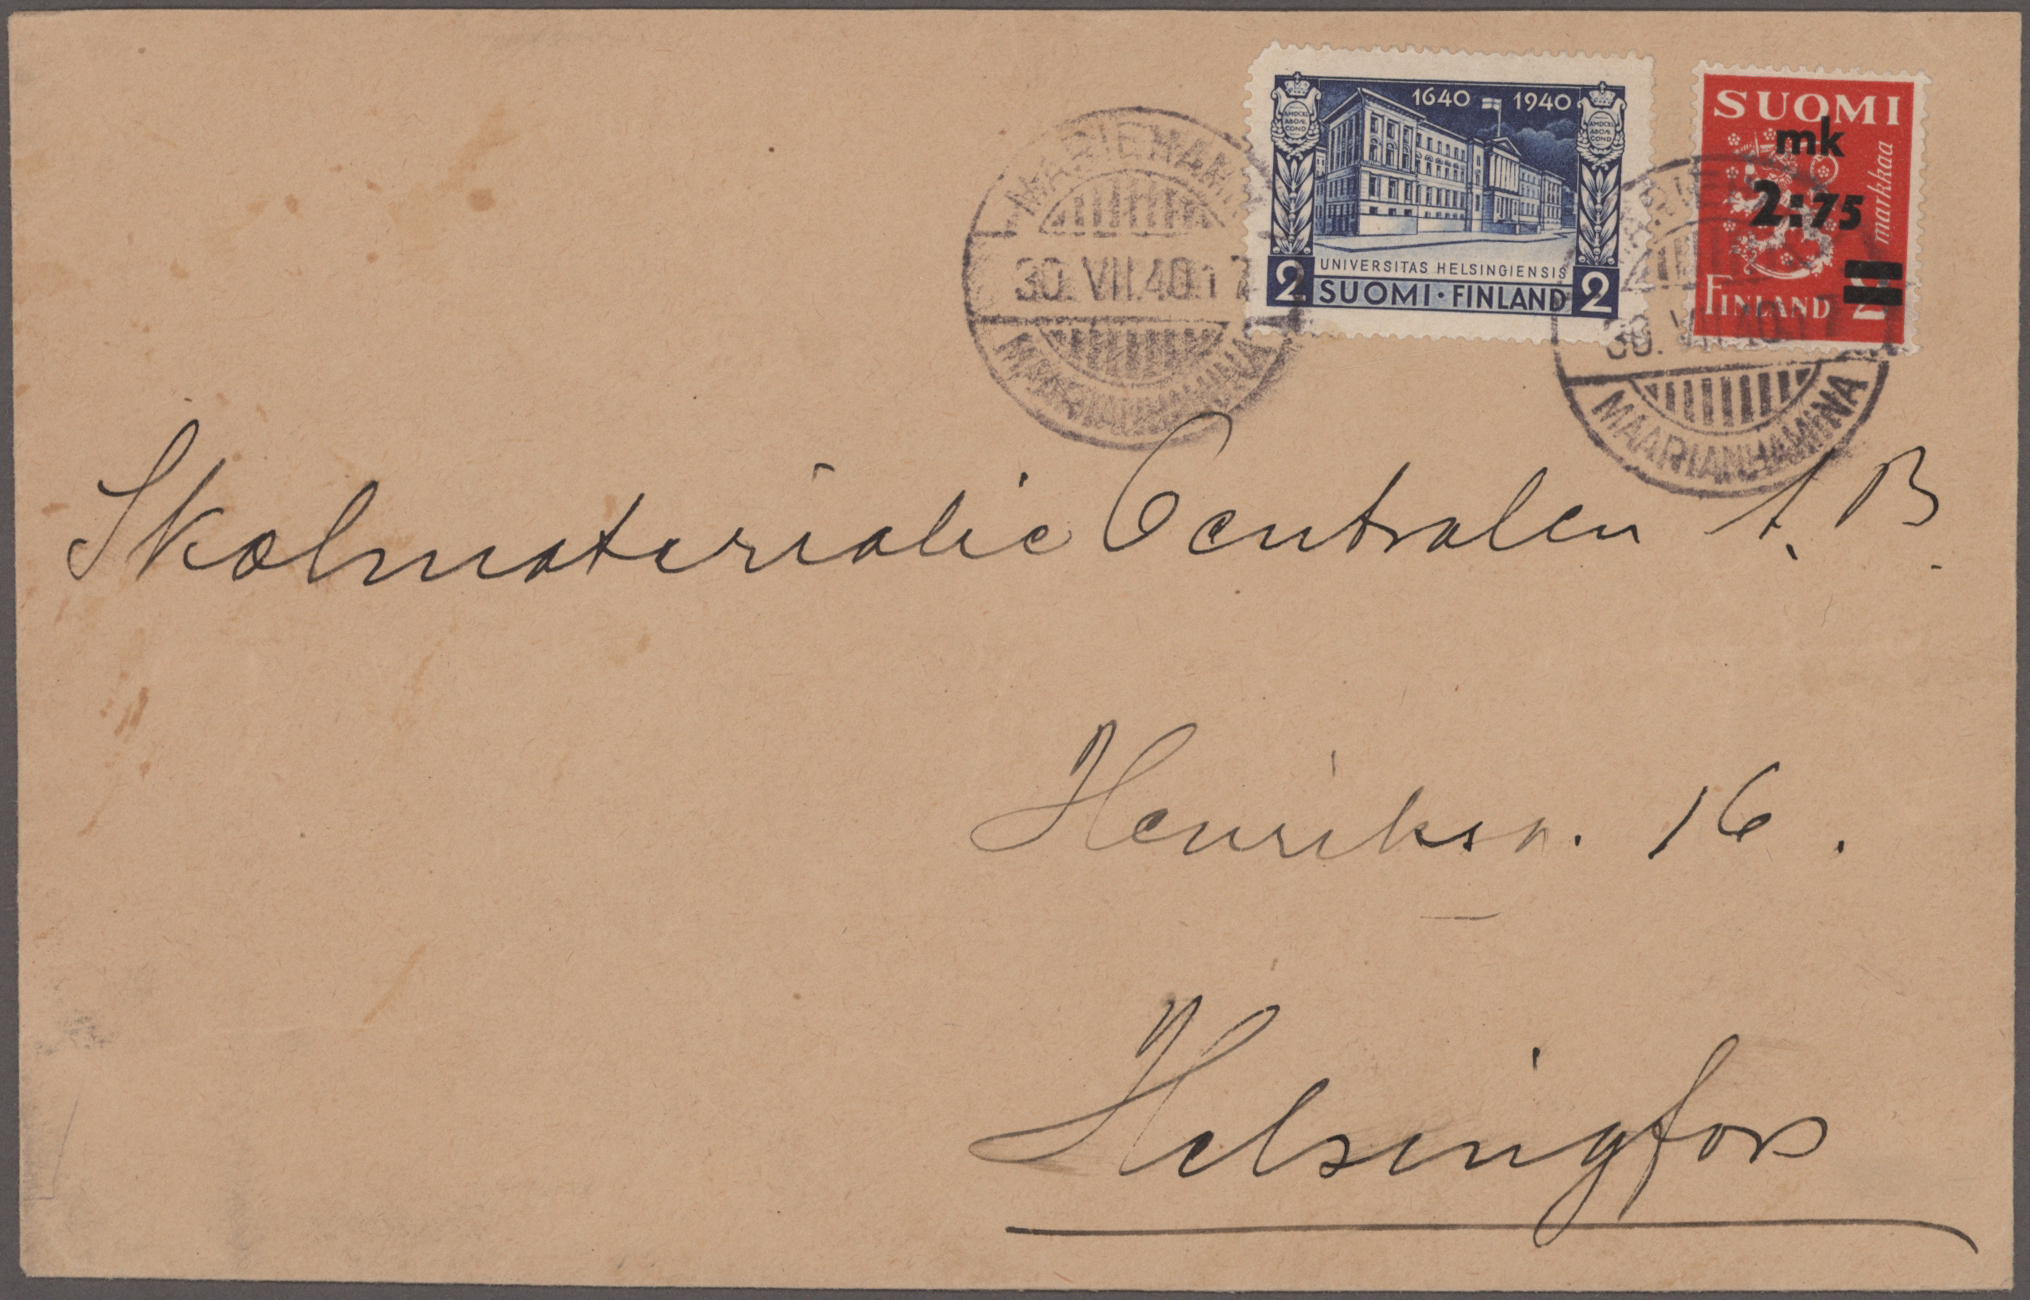 1640 1940
AMDCXL
ABOÆ
COND.
AMDCXL
ABOÆ
COND.
UNIVERSITAS HELSINGIENSIS
2 SUOMI·FINLAND 2
SUOMI
mk
2:75
markkaa
FINLAND 2
MARIEHAMN
30. VII.40.17
MAARIANHAMINA
30. VII.40.17
MAARIANHAMINA
Skolmaterialie Centralen A. B.
Henriksg. 16.
Helsingfors